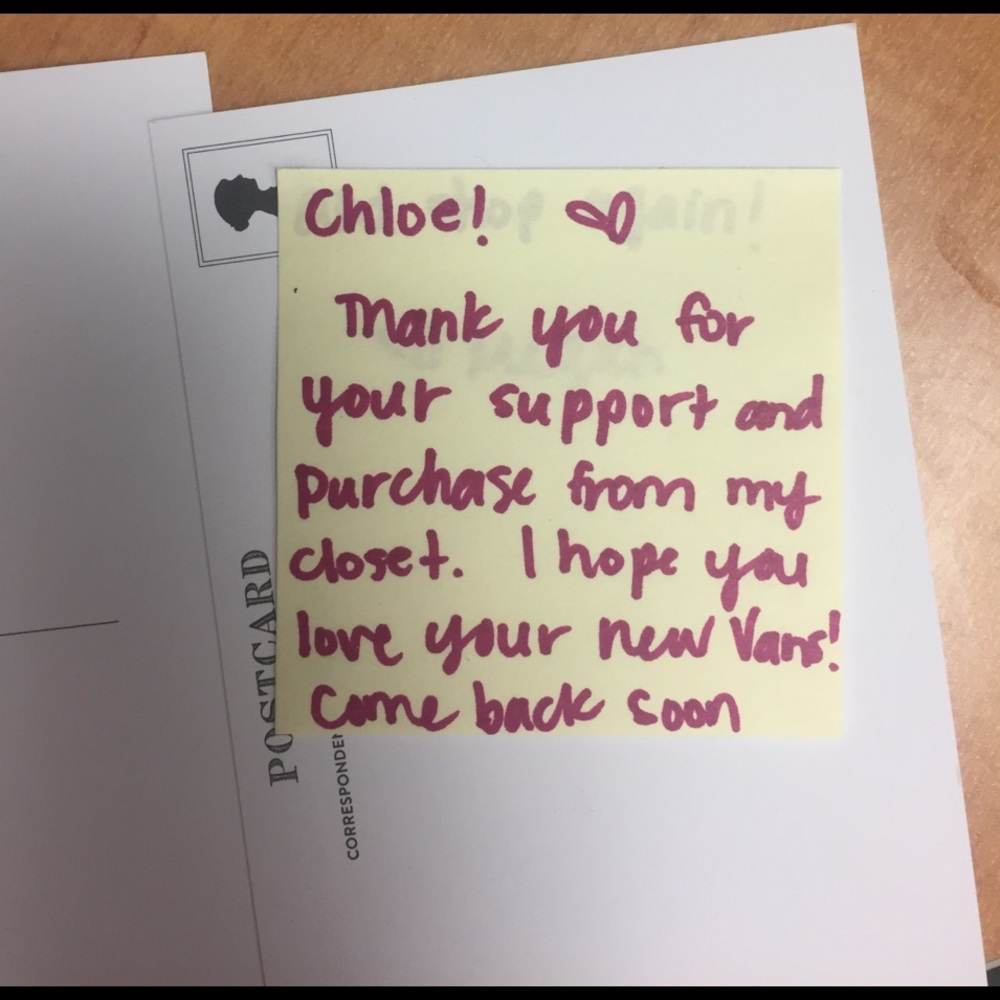 Chloe!
Thank you for
your support and
purchase from my
closet. I hope you
love your new Vans!
Come back soon
POSTCARD